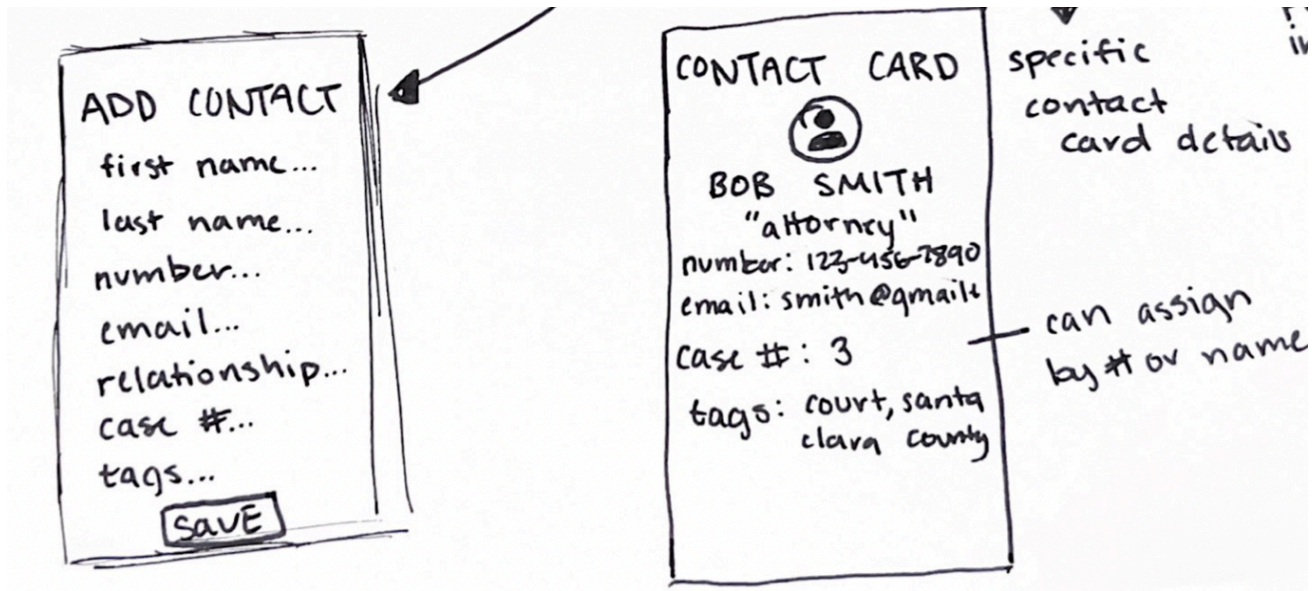 ADD CONTACT
first name...
last name...
number...
email...
relationship...
case #...
tags...
SAVE
CONTACT CARD
BOB SMITH
"attorney"
number: 123-456-7890
email: smith@gmail
case #: 3
tags: court, santa
clara county
specific
contact
card details
can assign
by # or name